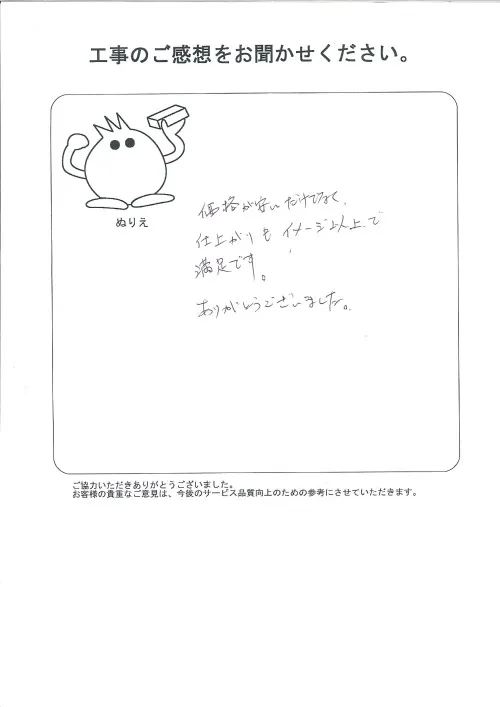 工事のご感想をお聞かせください。
ぬりえ
価格が安いだけでなく、
仕上がりもイメージ以上で
満足です。
ありがとうございました。
ご協力いただきありがとうございました。
お客様の貴重なご意見は、今後のサービス品質向上のための参考にさせていただきます。